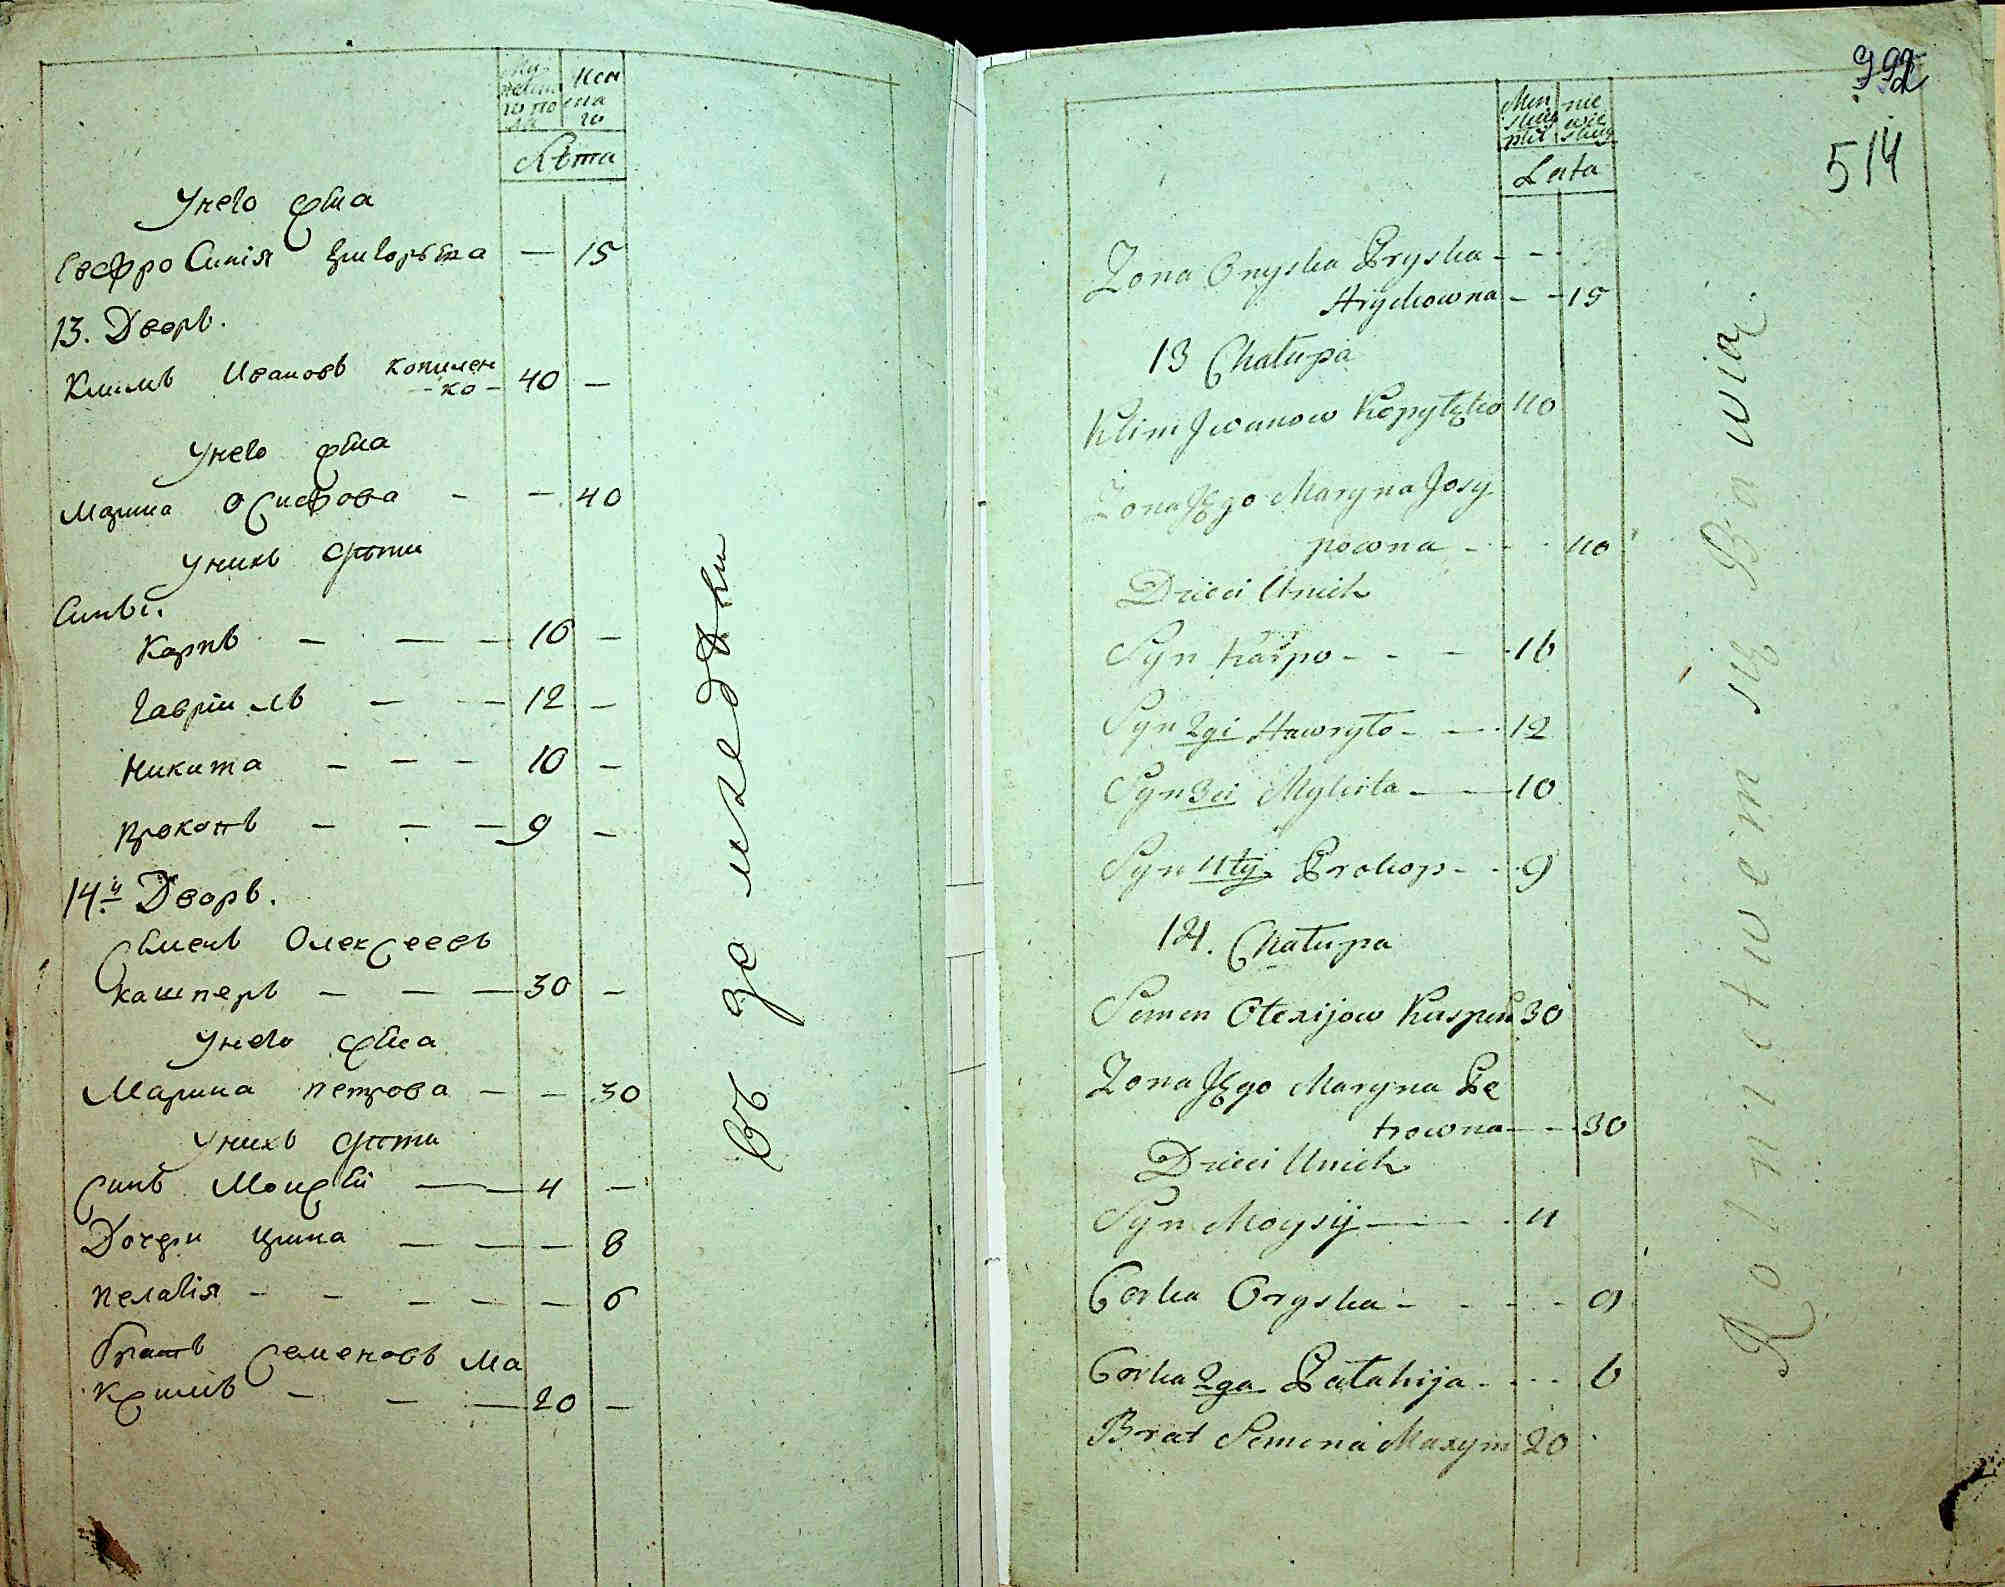 Мужеска
го по
ла
жен
ска
го
Лѣта
У него жена
Евфросинія Григорѣва — 15
13. Дворъ.
Климъ Ивановъ Копилен
ко — 40 —
У него жена
Марина Осифова — — 40
У нихъ дѣти
Сины.
Карпъ — — — 16 —
Гавріилъ — — 12 —
Никита — — — 10 —
Прокопъ — — — 9 —
14й Дворъ.
Семенъ Олексеевъ
Кашперъ — — — 30 —
У него жена
Марина Петрова — — 30
У нихъ дѣти
Синъ Моисей — — 4 —
Дочери Ирина — — — 8
Пелагія — — — — — 6
Братъ Семеновъ Ма
ксимъ — — — 20 —
992
514
Lata
Zona Onyska Pryska - -
Hrychowna - - 15
13 Chałupa
Klim Jwanow Kopytęko 40
Zona Jego Maryna Josy
powna - - - 40
Dzieci Unich
Syn Karpo - - - 16
Syn 2gi Hawryło - - 12
Syn 3ci Mykita — 10
Syn 4ty Prokop - - 9
14. Chałupa
Semen Olexijow Kasper 30
Zona Jego Maryna Pe
trowna - - 30
Dzieci Unich
Syn Moysij — - - 4
Corka Oryska - - - - 8
Corka 2ga Pałahija - - - - 6
Brat Semena Maxym 20
Rolnictwem się Bawią.